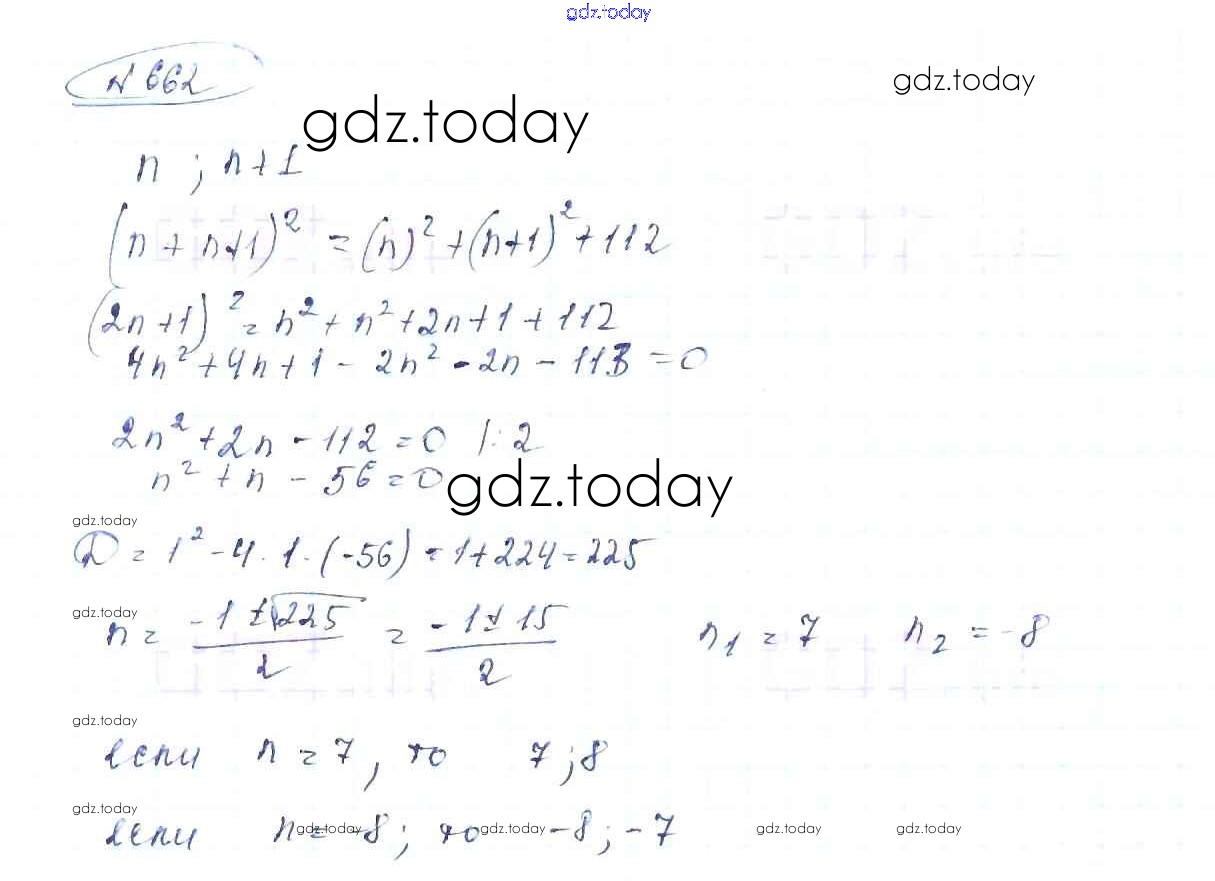 gdz.today
№ 662
gdz.today
gdz.today
n ; n+1
(n + n+1)² = (n)² + (n+1)² + 112
(2n+1)² = n² + n² + 2n + 1 + 112
4n² + 4n + 1 - 2n² - 2n - 113 = 0
2n² + 2n - 112 = 0 |: 2
n² + n - 56 = 0
gdz.today
gdz.today
D = 1² - 4 · 1 · (-56) = 1 + 224 = 225
gdz.today
n = (-1 ± √225)/2 = (-1 ± 15)/2 n₁ = 7 n₂ = -8
gdz.today
если n = 7, то 7; 8
gdz.today
если n = -8; то -8; -7
gdz.today gdz.today gdz.today gdz.today